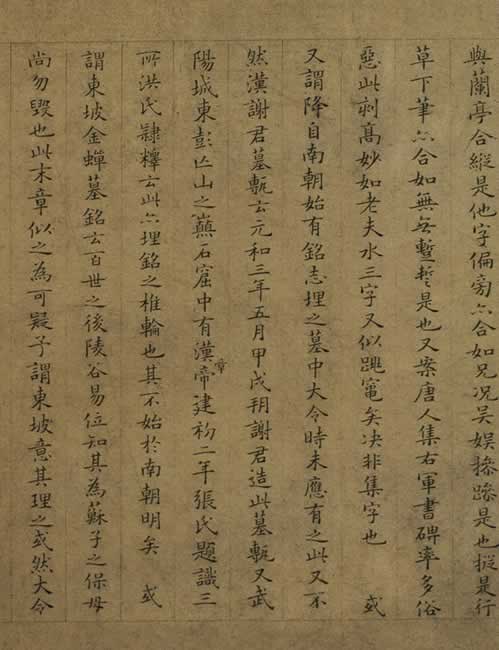 與蘭亭合縱是他字偏旁亦合如兄况吴娱摻蹤是也摐是行
草下筆亦合如無无蹔誓是也又案唐人集右軍書碑率多俗
惡此刻髙妙如老夫水三字又似跳竈矣决非集字也 或
又謂降自南朝始有銘志埋之墓中大令時未應有之此又不
然漢謝君墓甎云元和三年五月甲戌朔謝君造此墓甎又武
陽城東彭亡山之巓石窟中有漢章帝建初二年張氏題識三
所洪氏隸釋云此亦埋銘之椎輪也其不始於南朝明矣 或
謂東坡金蟬墓銘云百世之後陵谷易位知其為蘇子之保母
尚勿毁也此末章似之為可疑予謂東坡意其理之或然大令